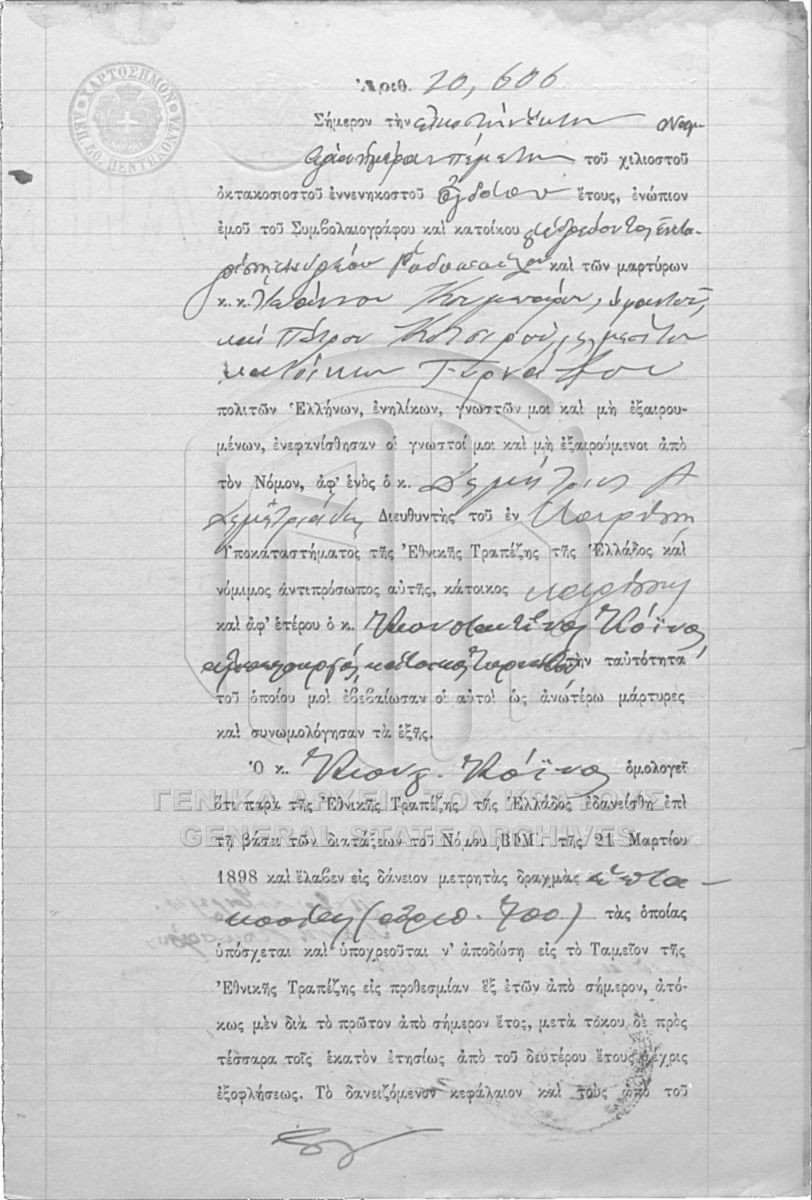 ΧΑΡΤΟΣΗΜΟΝ
ΛΕΠ. 50. ΠΕΝΤΗΚΟΝΤΑ
Ἀριθ. 20,606
Σήμερον τὴν εἰκοστὴν ἕκτην
ἡμέραν Πέμπτην τοῦ χιλιοστοῦ
ὀκτακοσιοστοῦ ἐννενηκοστοῦ ὀγδόου ἔτους, ἐνώπιον
ἐμοῦ τοῦ Συμβολαιογράφου καὶ κατοίκου
καὶ τῶν μαρτύρων
κ. κ.
καὶ Πέτρου
κατοίκων Τυρνάβου
πολιτῶν Ἑλλήνων, ἐνηλίκων, γνωστῶν μοι καὶ μὴ ἐξαιρου-
μένων, ἐνεφανίσθησαν οἱ γνωστοί μοι καὶ μὴ ἐξαιρούμενοι ἀπὸ
τὸν Νόμον, ἀφ' ἑνὸς ὁ κ. Δημήτριος Α
Δημητριάδης Διευθυντὴς τοῦ ἐν Λαρίσῃ
Ὑποκαταστήματος τῆς Ἐθνικῆς Τραπέζης τῆς Ἑλλάδος καὶ
νόμιμος ἀντιπρόσωπος αὐτῆς, κάτοικος Λαρίσης
καὶ ἀφ' ἑτέρου ὁ κ. Κωνσταντῖνος Κόϊνος
κάτοικος Τυρνάβου τὴν ταυτότητα
τοῦ ὁποίου μοὶ ἐβεβαίωσαν οἱ αὐτοὶ ὡς ἀνωτέρω μάρτυρες
καὶ συνωμολόγησαν τὰ ἑξῆς.
Ὁ κ. Κωνσ. Κόϊνος ὁμολογεῖ
ὅτι παρὰ τῆς Ἐθνικῆς Τραπέζης τῆς Ἑλλάδος ἐδανείσθη ἐπὶ
τῇ βάσει τῶν διατάξεων τοῦ Νόμου ͵ΒΦΜ΄. τῆς 21 Μαρτίου
1898 καὶ ἔλαβεν εἰς δάνειον μετρητὰς δραχμὰς ἑπτα-
κοσίας (ἀριθ. 700) τὰς ὁποίας
ὑπόσχεται καὶ ὑποχρεοῦται ν' ἀποδώσῃ εἰς τὸ Ταμεῖον τῆς
Ἐθνικῆς Τραπέζης εἰς προθεσμίαν ἓξ ἐτῶν ἀπὸ σήμερον, ἀτό-
κως μὲν διὰ τὸ πρῶτον ἀπὸ σήμερον ἔτος, μετὰ τόκου δὲ πρὸς
τέσσαρα τοῖς ἑκατὸν ἐτησίως ἀπὸ τοῦ δευτέρου ἔτους μέχρις
ἐξοφλήσεως. Τὸ δανειζόμενον κεφάλαιον καὶ τοὺς ἀπὸ τοῦ
ΓΕΝΙΚΑ ΑΡΧΕΙΑ ΤΟΥ ΚΡΑΤΟΥΣ
GENERAL STATE ARCHIVES